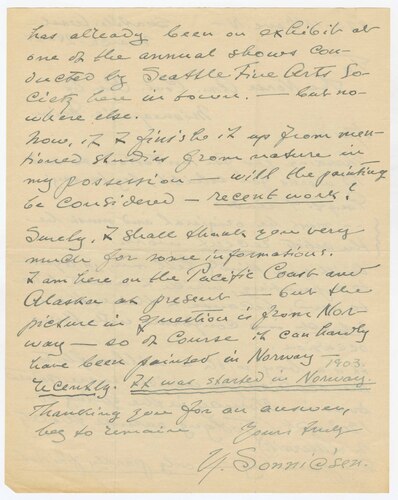 has already been on exhibit at
one of the annual shows con-
ducted by Seattle Fine Arts So-
ciety here in town. — but no-
where else.
Now, if I finish it up from men-
tioned studies from nature in
my possession — will the painting
be considered — recent work?
Surely, I shall thank you very
much for some informations.
I am here on the Pacific Coast and
Alaska at present — but the
picture in question is from Nor-
way — so of course it can hardly
have been painted in Norway —
recently. It was started in Norway. 1903.
Thanking you for an answer,
beg to remain
Yours truly
Y. Sonnichsen.